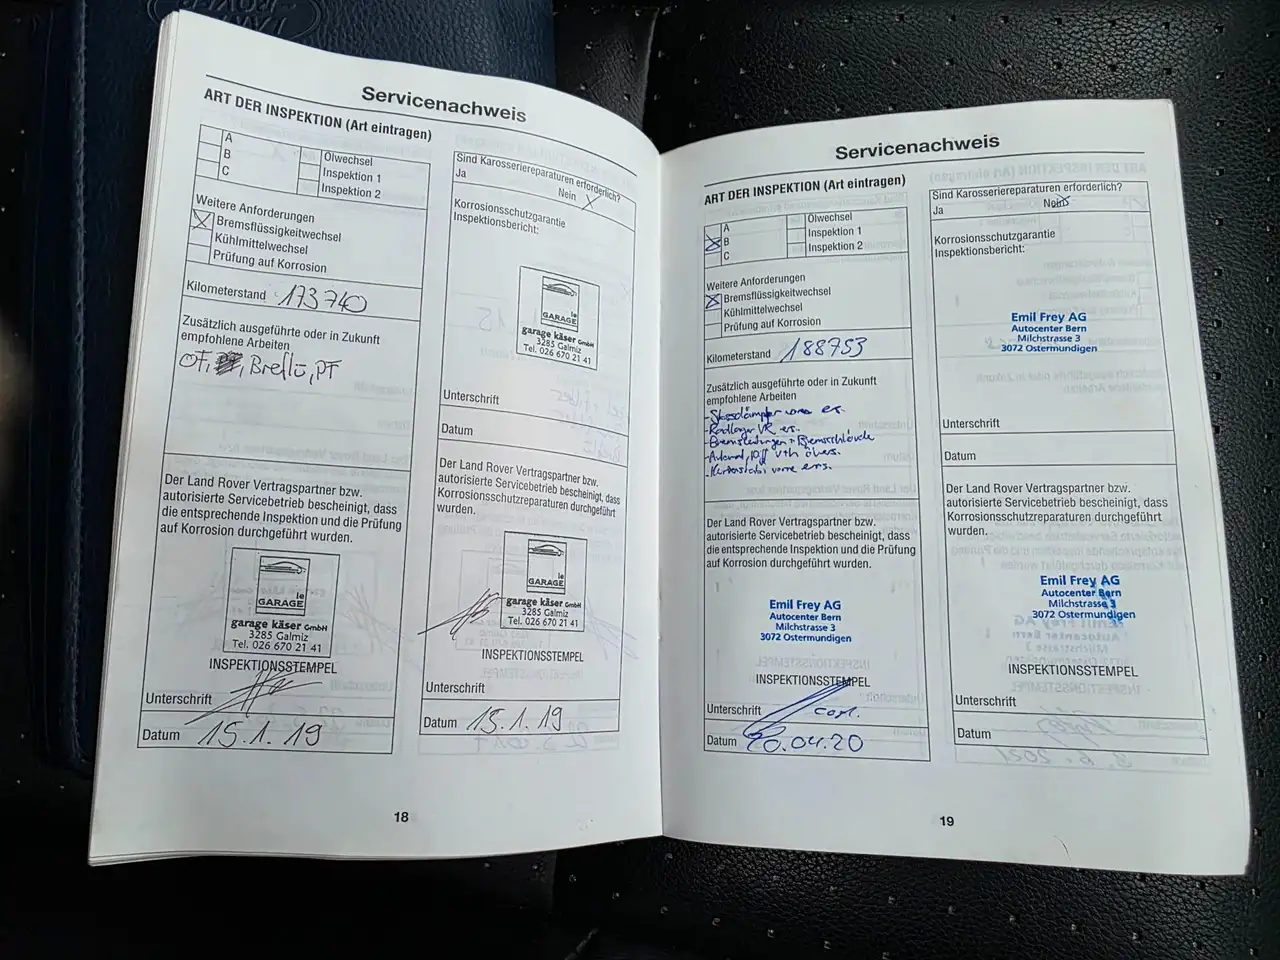 Servicenachweis
ART DER INSPEKTION (Art eintragen)
A
B
C
Ölwechsel
Inspektion 1
Inspektion 2
Weitere Anforderungen
Bremsflüssigkeitwechsel
Kühlmittelwechsel
Prüfung auf Korrosion
Kilometerstand 173740
Zusätzlich ausgeführte oder in Zukunft
empfohlene Arbeiten
ÖF, Breflü, PF
Der Land Rover Vertragspartner bzw.
autorisierte Servicebetrieb bescheinigt, dass
die entsprechende Inspektion und die Prüfung
auf Korrosion durchgeführt wurden.
le
GARAGE
garage käser GmbH
3285 Galmiz
Tel. 026 670 21 41
INSPEKTIONSSTEMPEL
Unterschrift
Datum 15.1.19
Sind Karosseriereparaturen erforderlich?
Ja Nein
Korrosionsschutzgarantie
Inspektionsbericht:
le
GARAGE
garage käser GmbH
3285 Galmiz
Tel. 026 670 21 41
Unterschrift
Datum
Der Land Rover Vertragspartner bzw.
autorisierte Servicebetrieb bescheinigt, dass
Korrosionsschutzreparaturen durchgeführt
wurden.
le
GARAGE
garage käser GmbH
3285 Galmiz
Tel. 026 670 21 41
INSPEKTIONSSTEMPEL
Unterschrift
Datum 15.1.19
18
Servicenachweis
ART DER INSPEKTION (Art eintragen)
A
B
C
Ölwechsel
Inspektion 1
Inspektion 2
Weitere Anforderungen
Bremsflüssigkeitwechsel
Kühlmittelwechsel
Prüfung auf Korrosion
Kilometerstand 188753
Zusätzlich ausgeführte oder in Zukunft
empfohlene Arbeiten
- Stossdämpfer vorne ers.
- Radlager VR ers.
- Bremsleitungen + Bremsschläuche
Der Land Rover Vertragspartner bzw.
autorisierte Servicebetrieb bescheinigt, dass
die entsprechende Inspektion und die Prüfung
auf Korrosion durchgeführt wurden.
Emil Frey AG
Autocenter Bern
Milchstrasse 3
3072 Ostermundigen
INSPEKTIONSSTEMPEL
Unterschrift
Datum 20.04.20
Sind Karosseriereparaturen erforderlich?
Ja Nein
Korrosionsschutzgarantie
Inspektionsbericht:
Emil Frey AG
Autocenter Bern
Milchstrasse 3
3072 Ostermundigen
Unterschrift
Datum
Der Land Rover Vertragspartner bzw.
autorisierte Servicebetrieb bescheinigt, dass
Korrosionsschutzreparaturen durchgeführt
wurden.
Emil Frey AG
Autocenter Bern
Milchstrasse 3
3072 Ostermundigen
INSPEKTIONSSTEMPEL
Unterschrift
Datum
19